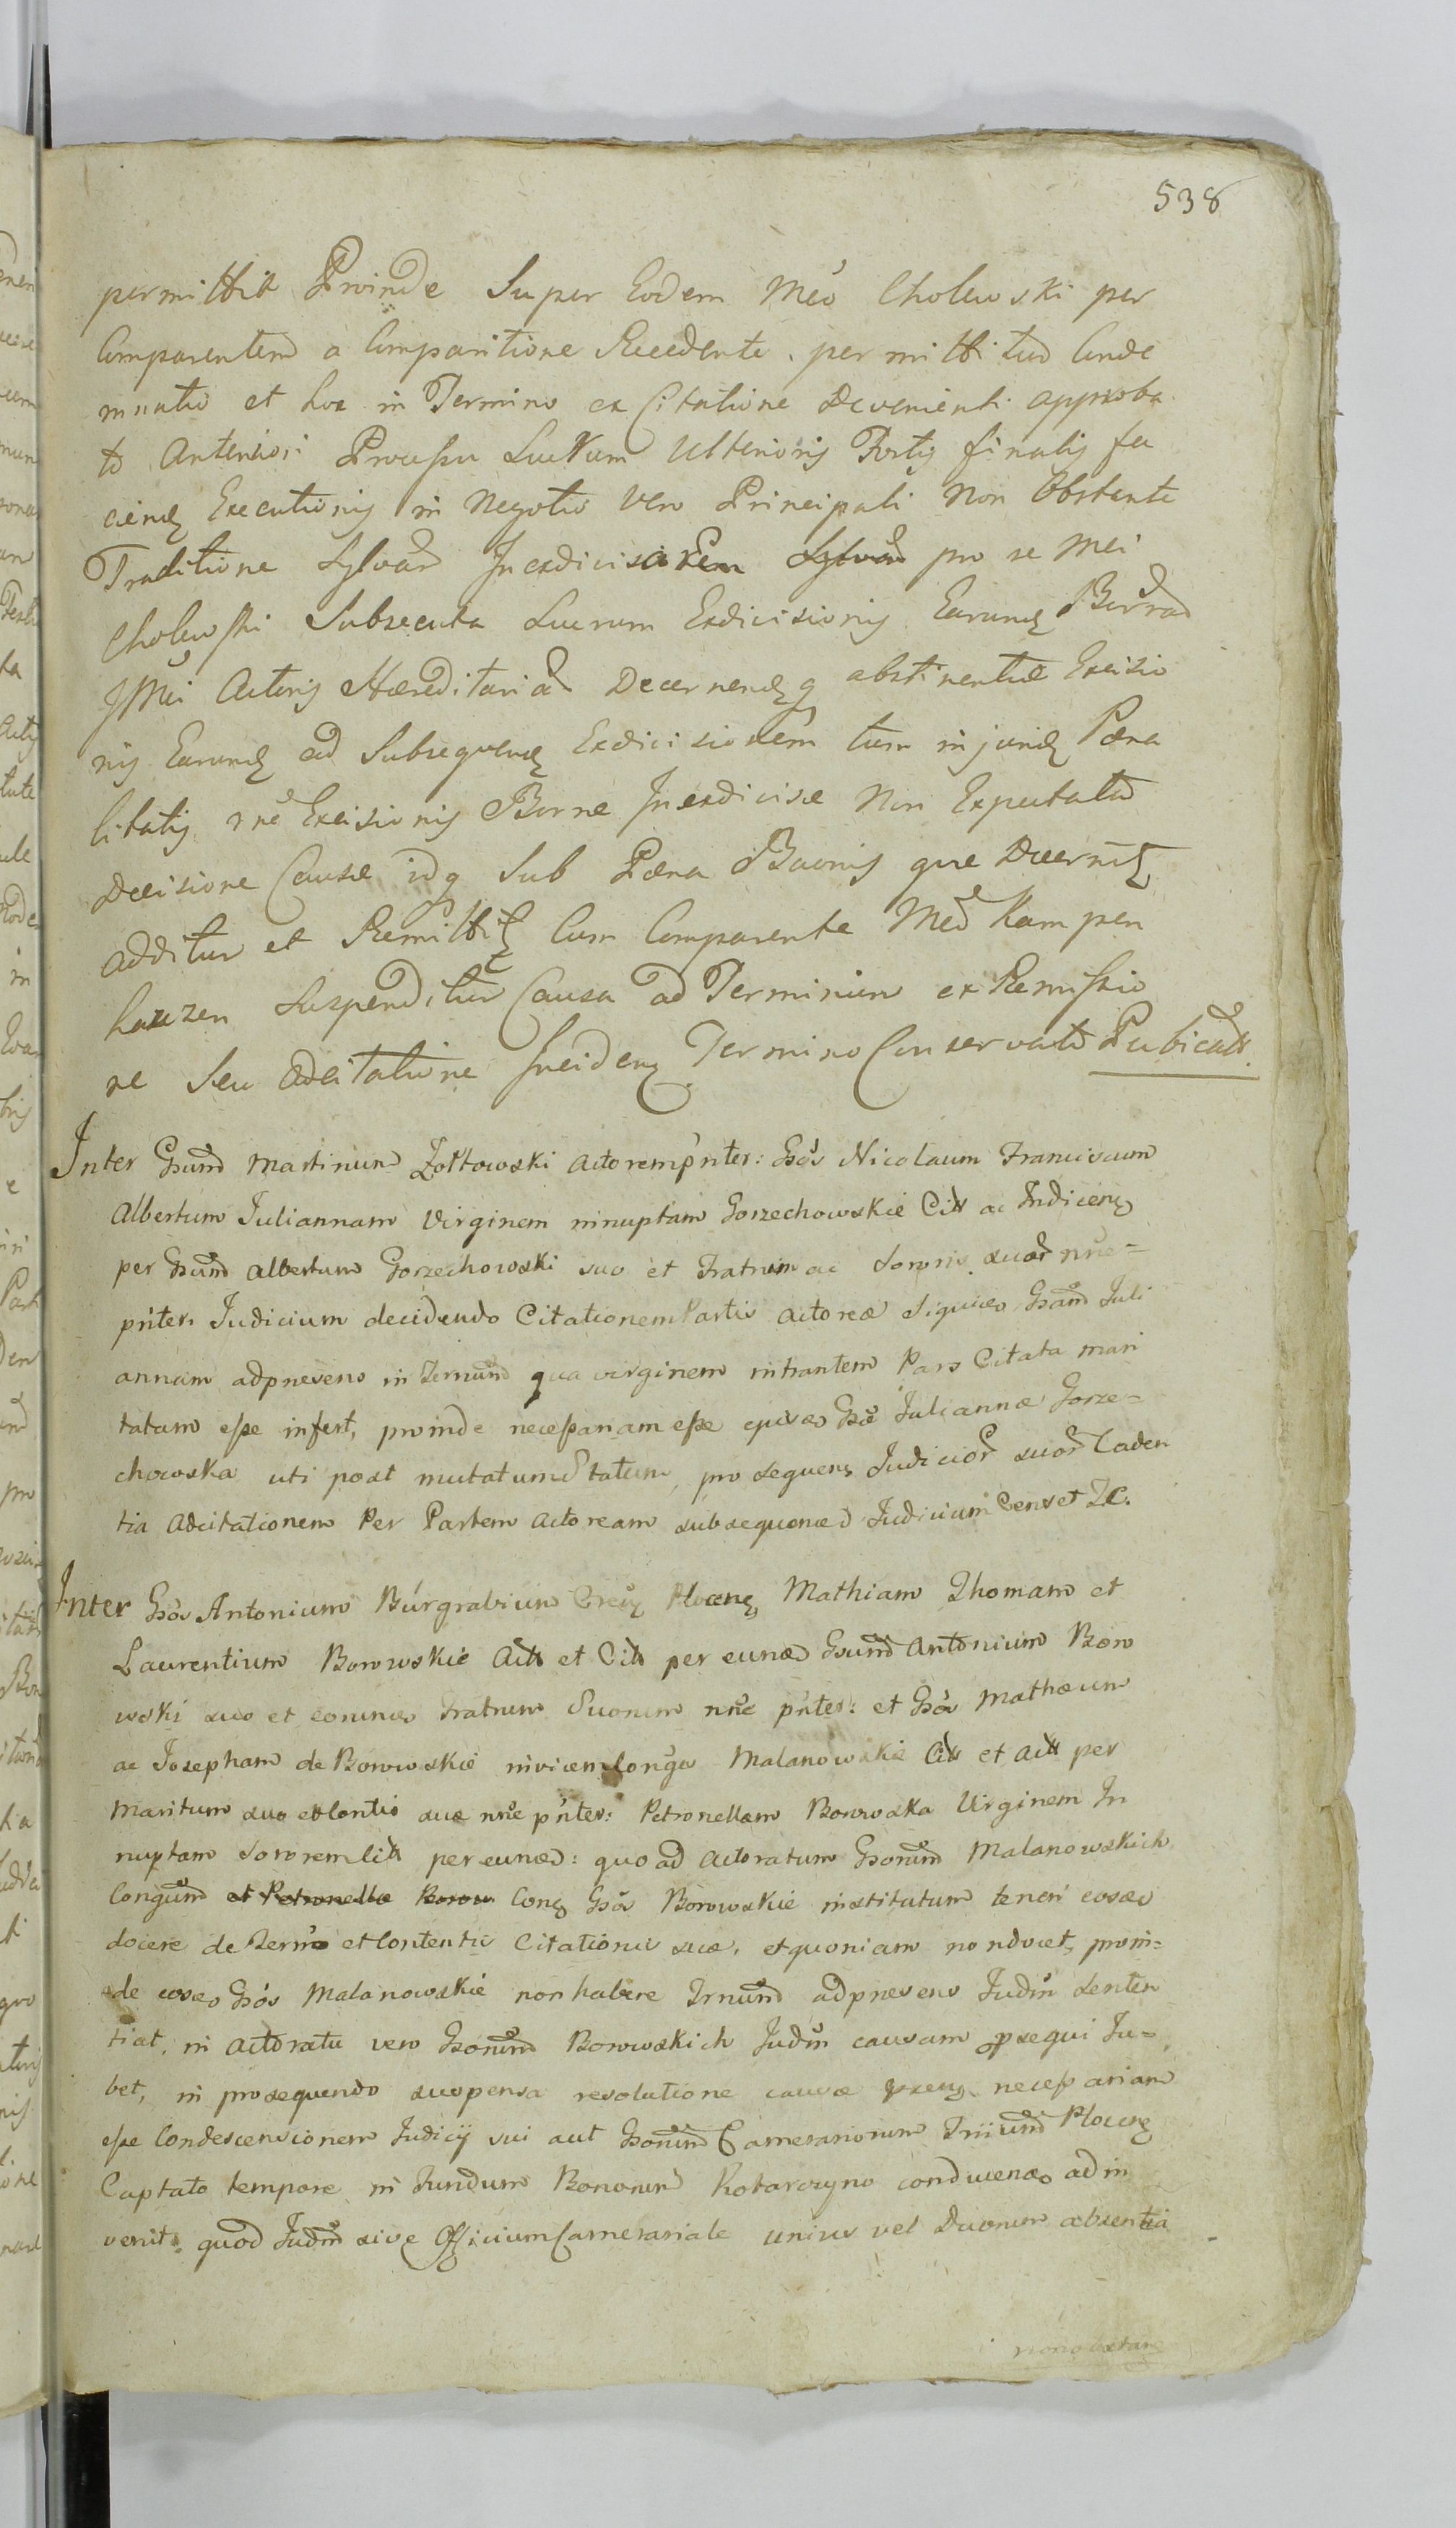 538
permittit Proinde Super Eodem Mco Cholewski per
Comparentem a Comparitione Recedente permittitur Conde
mnatio et hoc in Termino ex Citatione Devenienti approba
to Anteriori Processu Luctum Ulterioris Portis finalis fa
ciend Executionis in Negotio Vero Principali Non Obstante
Traditione Sylvar Inexdivisarem Sylvar pro se Mci
Cholewski Subsecuta Lucrum Exdivisionis Earund Borrar
JMci Actoris Hæreditariar Decernend q abstinentiæ Excisio
nis Earund ad Subsequend Exdivisionem tum injund Pæna
litatis rne Excisionis Borræ Inexdivisæ Non Expectata
Decisione Causæ idq Sub Pæna Bannis que Decernit
additur et Remittit Cum Comparente Mco Kampen
hauzen Suspenditur Causa ad Terminum ex Remissio
ne Seu Adcitatione Incidend Termino Conservato Publicat.
Inter Gsum Martinum Zołtowski Actorem pnter: Gsos Nicolaum Franciscum
Albertum Juliannam Virginem innuptam Gorzechowskie Citt ac Indicens
per Gsum Albertum Gorzechowski suo et Fratrum ac Sororis suar nne=
pnter: Judicium decidendo Citationem Partis Actoreæ Siquid Gsam Juli
annam adpræsens in Ternum qua virginem intrantem Pars Citata mari
tatam esse infert, proinde necessariam esse ejusd Gsæ Juliannæ Gorze=
chowska uti post mutatum Statum, prosequens Judicior suor Caden
tia Adcitationem Per Partem Actoream subsequend Judicium Censet ZC.
Inter Gsos Antonium Búrgrabium Crens Plocens, Mathiam Thomam et
Laurentium Borowskie Actt et Citt per eund Gsum Antonium Boro
wski suo et eorund Fratrum Suorum nne pnter: et Gsos Mathæum
ac Josepham de Borowskie invicem Conges Malanowskie Citt et Actt per
Maritum suo et Contis suæ nne pnter: Petronellam Borowska Virginem In
nuptam Sororem Citt per eund: quo ad Actoratum Gsorum Malanowskich
Congum et Petronellæ Borow Cong Gsos Borowskie institutum teneri eosd
docere de Termo et Contentis Citationis suæ, et quoniam non docet, proin=
de eosd Gsos Malanowskie non habere Trnum adpræsens Judm Senten
tiat, in Actoratu vero Gsorum Borowskich Judm causam prosequi Ju=
bet, in prosequendo suspensa resolutione causæ præns necessariam
esse Condescensionem Judicij sui aut Gsorum Camerariorum Triium Plocens
Captato tempore in Fundum Bonorum Kobarczyno conducend adin
venit, quod Judm sive Officium Camerariale unius vel Duorum absentia
nonobstan